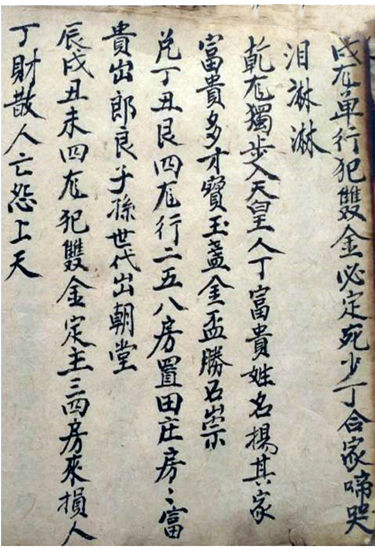 戌尨單行犯雙金必定死少丁合家啼哭
泪淋淋
乾尨獨步入天皇人丁富貴姓名揚其家
富貴多才寶玉盞金盃勝石崇
兑丁丑艮四尨行二五八房置田庄房〻富
貴出郎良子孫世代出朝堂
辰戌丑未四尨犯雙金定主三四房來損人
丁財散人亡怨上天